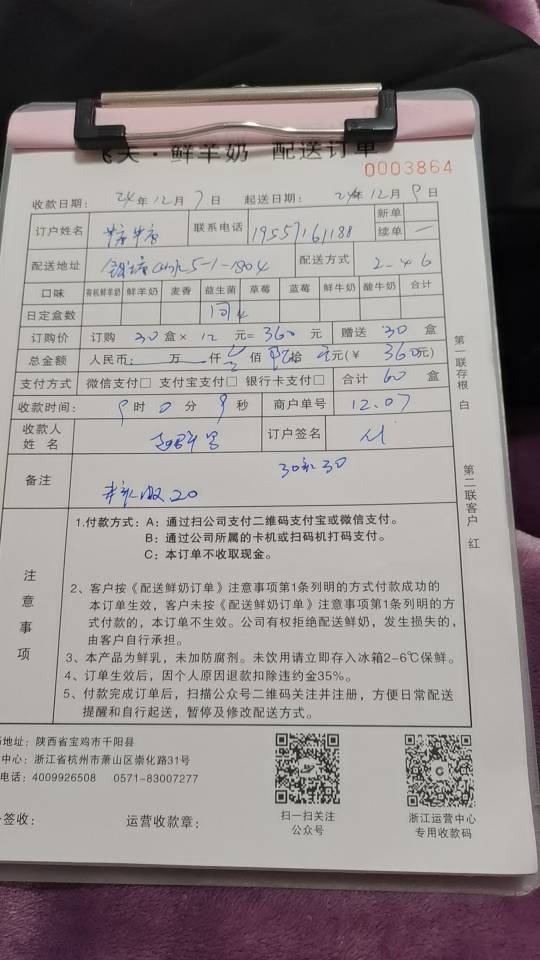 飞天·鲜羊奶 配送订单
0003864
收款日期： 24年12月7日 起送日期： 24年12月9日
订户姓名 联系电话 19557161188 新单
续单
配送地址 5-1-1804 配送方式 2-4-6
口味 有机鲜羊奶 鲜羊奶 麦香 益生菌 草莓 蓝莓 鲜牛奶 酸牛奶 合计
日定盒数
订购价 订购 30 盒× 12 元= 360 元 赠送 30 盒
总金额 人民币： 万 仟 佰 拾 元(￥ 360元)
支付方式 微信支付□ 支付宝支付□ 银行卡支付□ 合计 60 盒
收款时间： 9时0分9秒 商户单号 12.07
收款人姓名 订户签名
备注 30礼30
20
注意事项
1.付款方式：A：通过扫公司支付二维码支付宝或微信支付。
B：通过公司所属的卡机或扫码机打码支付。
C：本订单不收取现金。
2、客户按《配送鲜奶订单》注意事项第1条列明的方式付款成功的
本订单生效，客户未按《配送鲜奶订单》注意事项第1条列明的方
式付款的，本订单不生效。公司有权拒绝配送鲜奶，发生损失的，
由客户自行承担。
3、本产品为鲜乳，未加防腐剂。未饮用请立即存入冰箱2-6℃保鲜。
4、订单生效后，因个人原因退款扣除违约金35%。
5、付款完成订单后，扫描公众号二维码关注并注册，方便日常配送
提醒和自行起送，暂停及修改配送方式。
第一联存根 白
第二联客户 红
地址：陕西省宝鸡市千阳县
中心：浙江省杭州市萧山区崇化路31号
电话：4009926508 0571-83007277
签收： 运营收款章：
扫一扫关注
公众号
浙江运营中心
专用收款码